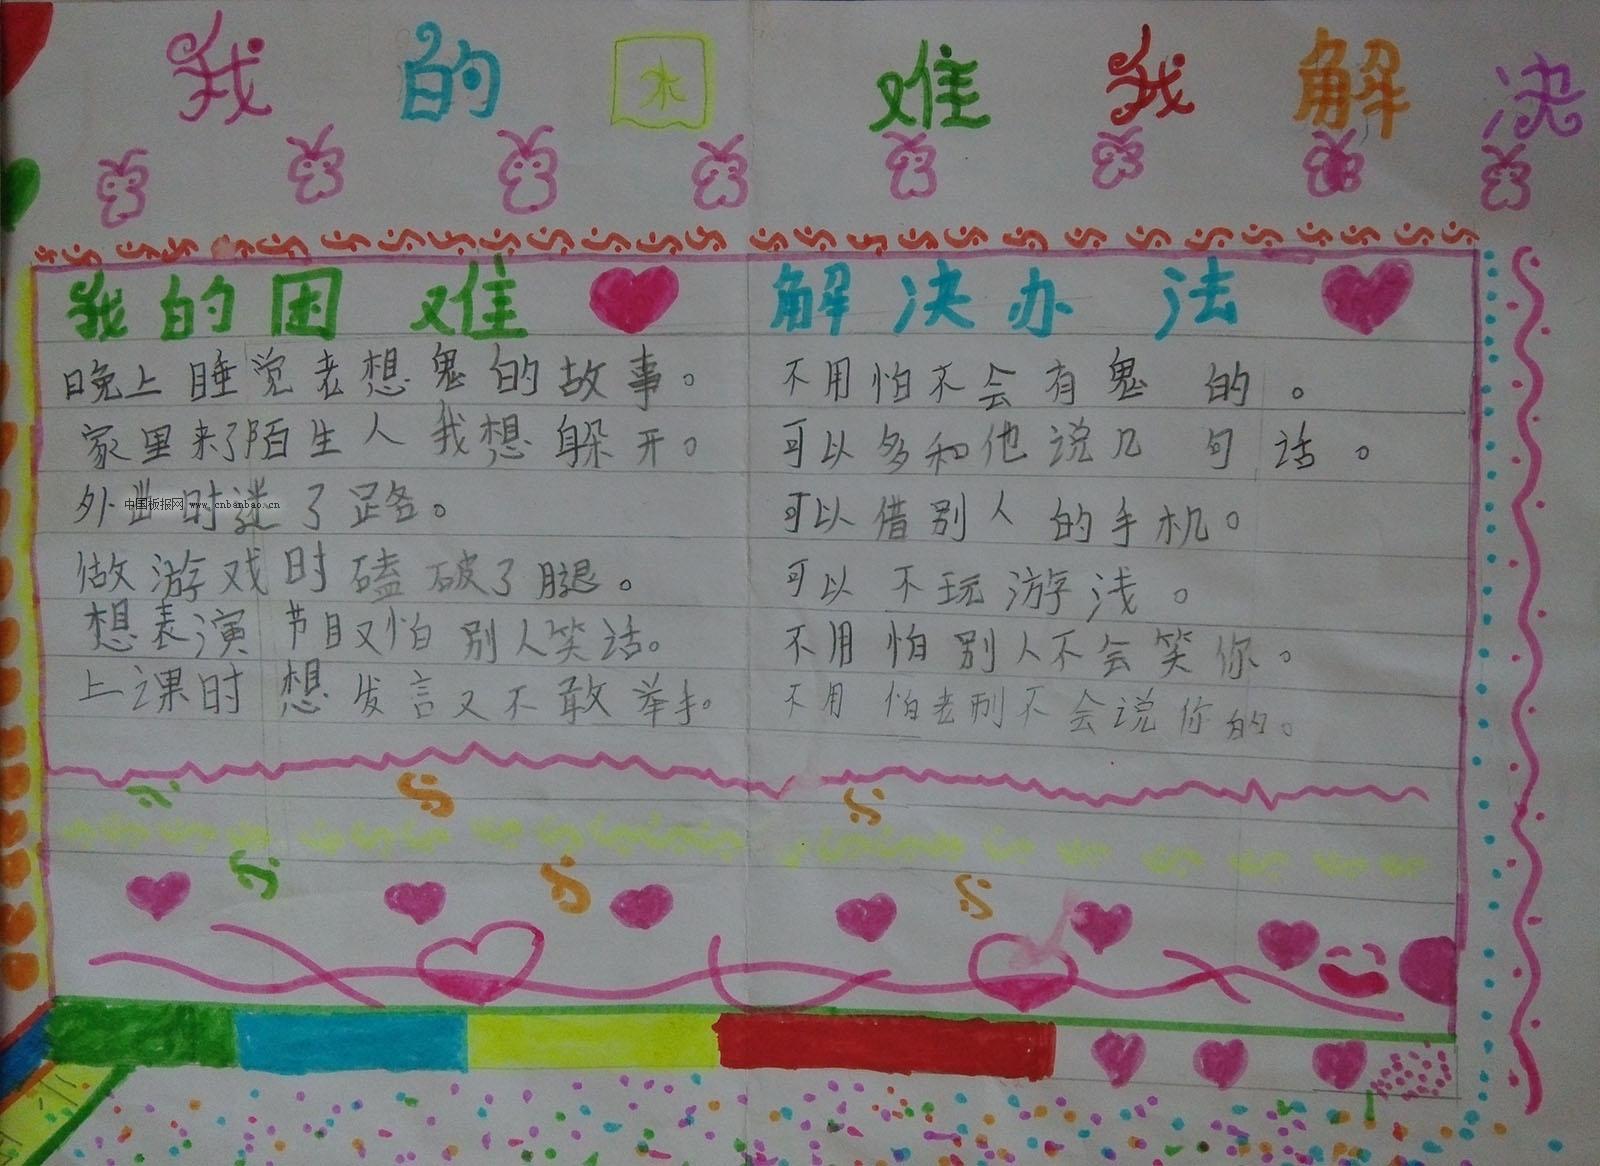 我的困难我解决
我的困难 解决办法
晚上睡觉老想鬼的故事。 不用怕不会有鬼的。
家里来了陌生人我想躲开。 可以多和他说几句话。
外出时迷了路。 可以借别人的手机。
中国板报网 www.cnbanbao.cn
做游戏时磕破了腿。 可以不玩游浅。
想表演节目又怕别人笑话。 不用怕别人不会笑你。
上课时想发言又不敢举手。 不用怕老刑不会说你的。